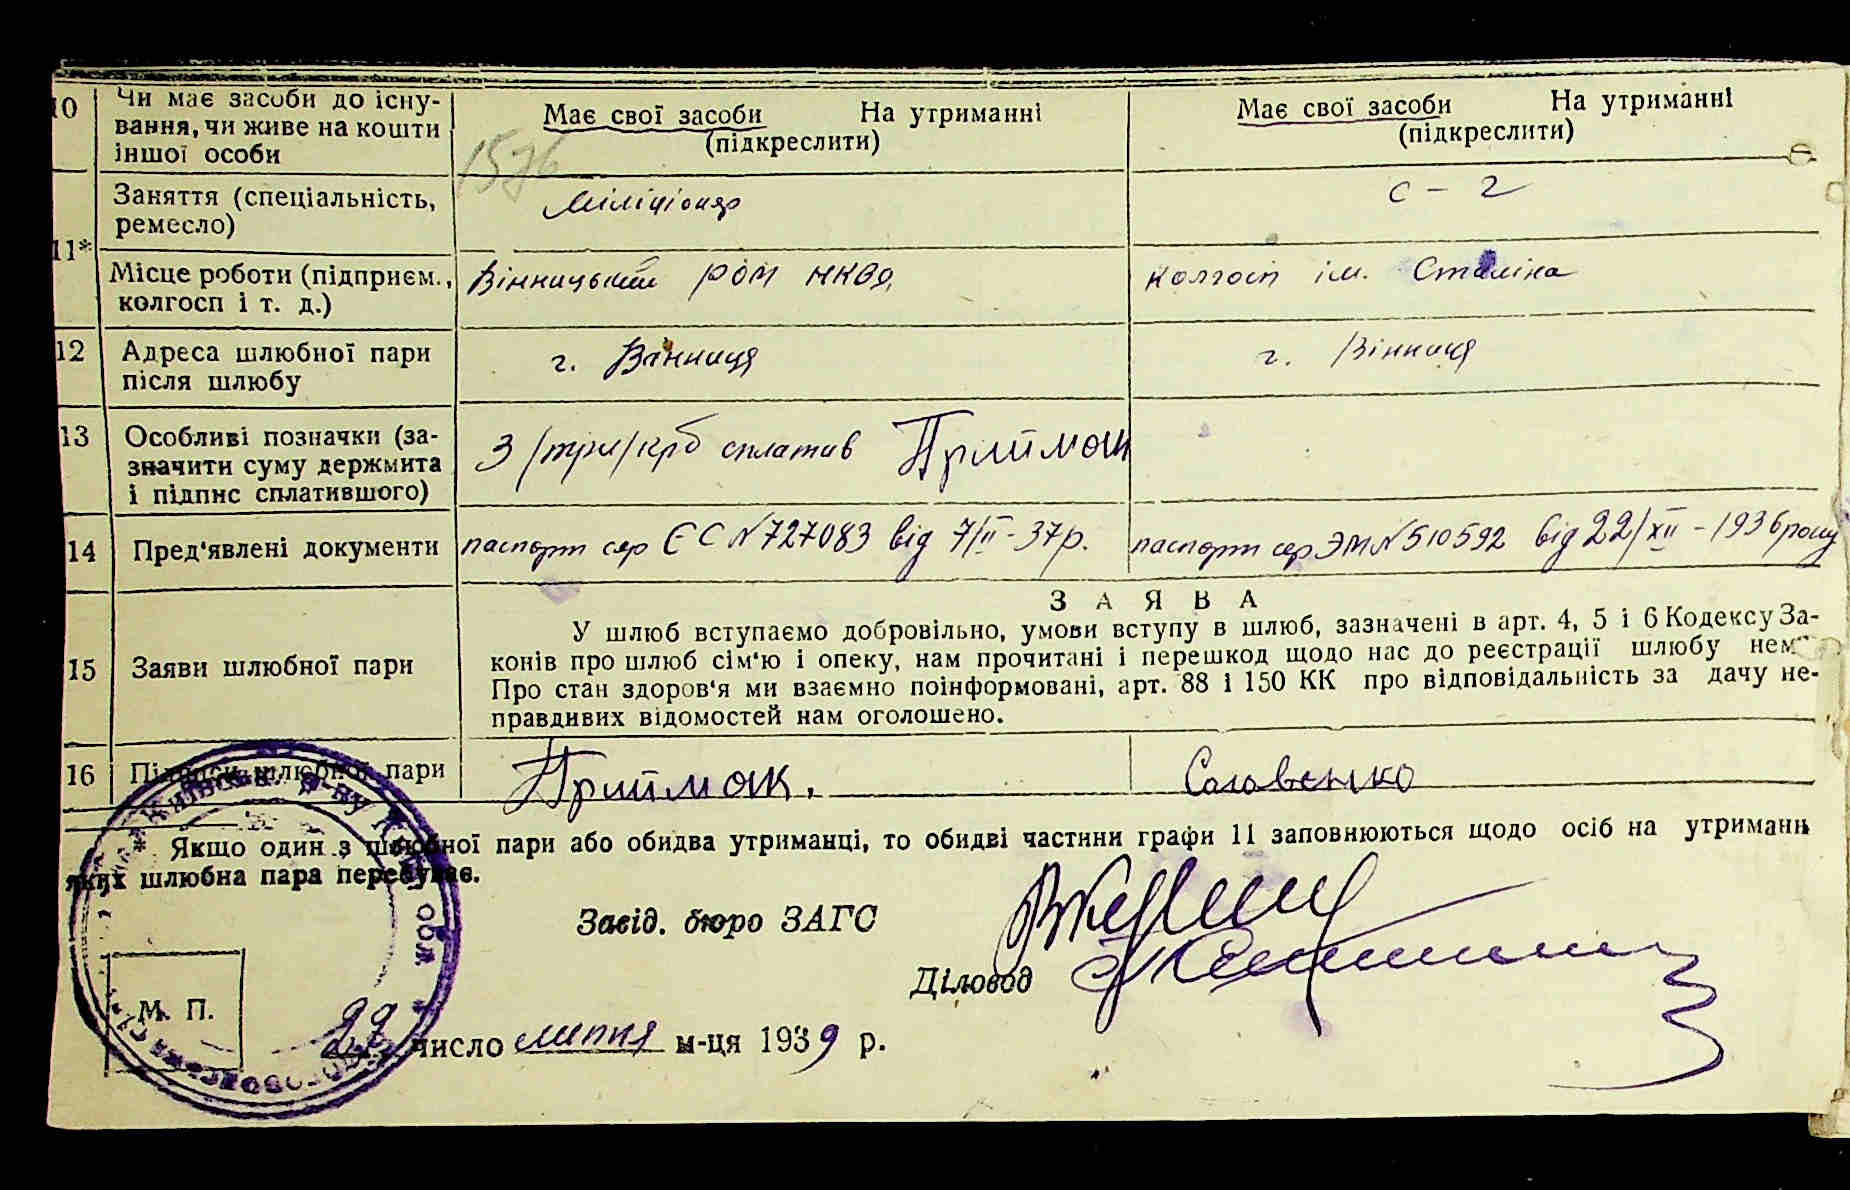 10
Чи має засоби до існу-
вання, чи живе на кошти
іншої особи
Має свої засоби На утриманні
(підкреслити)
Має свої засоби На утриманні
(підкреслити)
1576
11*
Заняття (спеціальність,
ремесло)
Міліціонер
с - г
Місце роботи (підприєм.,
колгосп і т. д.)
Вінницький РОМ НКВД
колгосп ім. Сталіна
12
Адреса шлюбної пари
після шлюбу
г. Вінниця
г. Вінниця
13
Особливі позначки (за-
значити суму держмита
і підпис сплатившого)
3 /три/ крб сплатив Приймак
14
Пред'явлені документи
паспорт сер ЄС №727083 від 7/II-37р.
паспорт сер ЭМ №510592 від 22/XII-1936 року
15
Заяви шлюбної пари
ЗАЯВА
У шлюб вступаємо добровільно, умови вступу в шлюб, зазначені в арт. 4, 5 і 6 Кодексу За-
конів про шлюб сім'ю і опеку, нам прочитані і перешкод щодо нас до реєстрації шлюбу нема
Про стан здоров'я ми взаємно поінформовані, арт. 88 і 150 КК про відповідальність за дачу не-
правдивих відомостей нам оголошено.
16
Підписи шлюбної пари
Приймак.
* Якщо один з шлюбної пари або обидва утриманці, то обидві частини графи 11 заповнюються щодо осіб на утриманн
яких шлюбна пара перебуває.
Завід. бюро ЗАГС
Діловод
М. П.
27 число липня м-ця 1939 р.